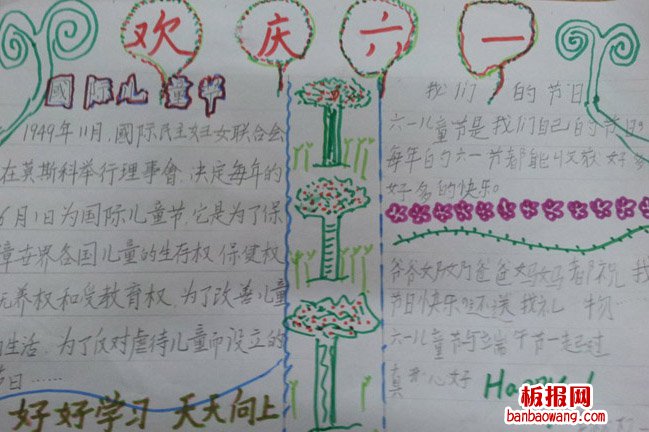 欢庆六一
國际儿童节
1949年11月,國际民主妇女联合会
在莫斯科举行理事會,决定每年的
6月1日为国际儿童节,它是为了保
障世界各国儿童的生存权 保健权
抚养权和受教育权,为了改善儿童
的生活,为了反对虐待儿童而设立的
节日……
好好学习 天天向上
我们的节日
六一儿童节是我们自己的节日
每年的六一节都能收获好多
好多的快乐。
爷爷奶奶爸爸妈妈都祝我
节日快乐 还送我礼物
六一儿童节与端午节一起过
真开心好
Happy!
板报网
banbaowang.com